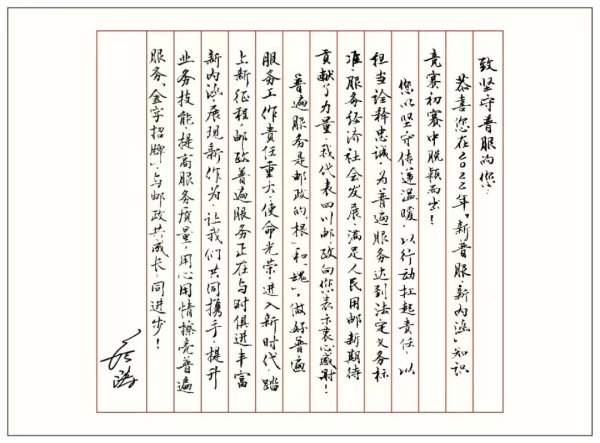 致坚守普服的您：
恭喜您在2022年“新普服·新内涵”知识
竞赛初赛中脱颖而出！
您以坚守传递温暖，以行动扛起责任，以
担当诠释忠诚，为普遍服务达到法定义务标
准、服务经济社会发展、满足人民用邮新期待
贡献了力量，我代表四川邮政向您表示衷心感谢！
普遍服务是邮政的“根”和“魂”，做好普遍
服务工作责任重大、使命光荣，进入新时代踏
上新征程，邮政普遍服务正在与时俱进丰富
新内涵、展现新作为，让我们共同携手，提升
业务技能，提高服务质量，用心用情擦亮普遍
服务“金字招牌”，与邮政共成长、同进步！